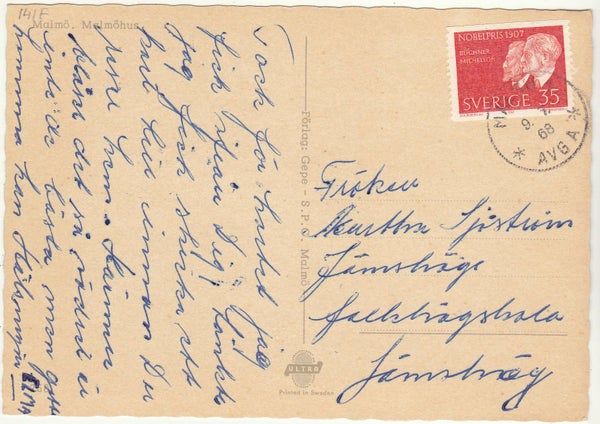 141F
Malmö. Malmöhus
Tack för kortet jag
fick ifrån Dig! Tänkte
jag fick skicka ett
kort till innan Du
hem.
det så är
inte de bästa men
Hälsningar
Förlag: Gepe - S.P.C. Malmö
ULTRA
Printed in Sweden
NOBELPRIS 1907
BUCHNER
MICHELSON
SVERIGE 35
9
68
* AVGA *
Fröken
Martha Sjöström
Jämshögs
folkhögskola
Jämshög